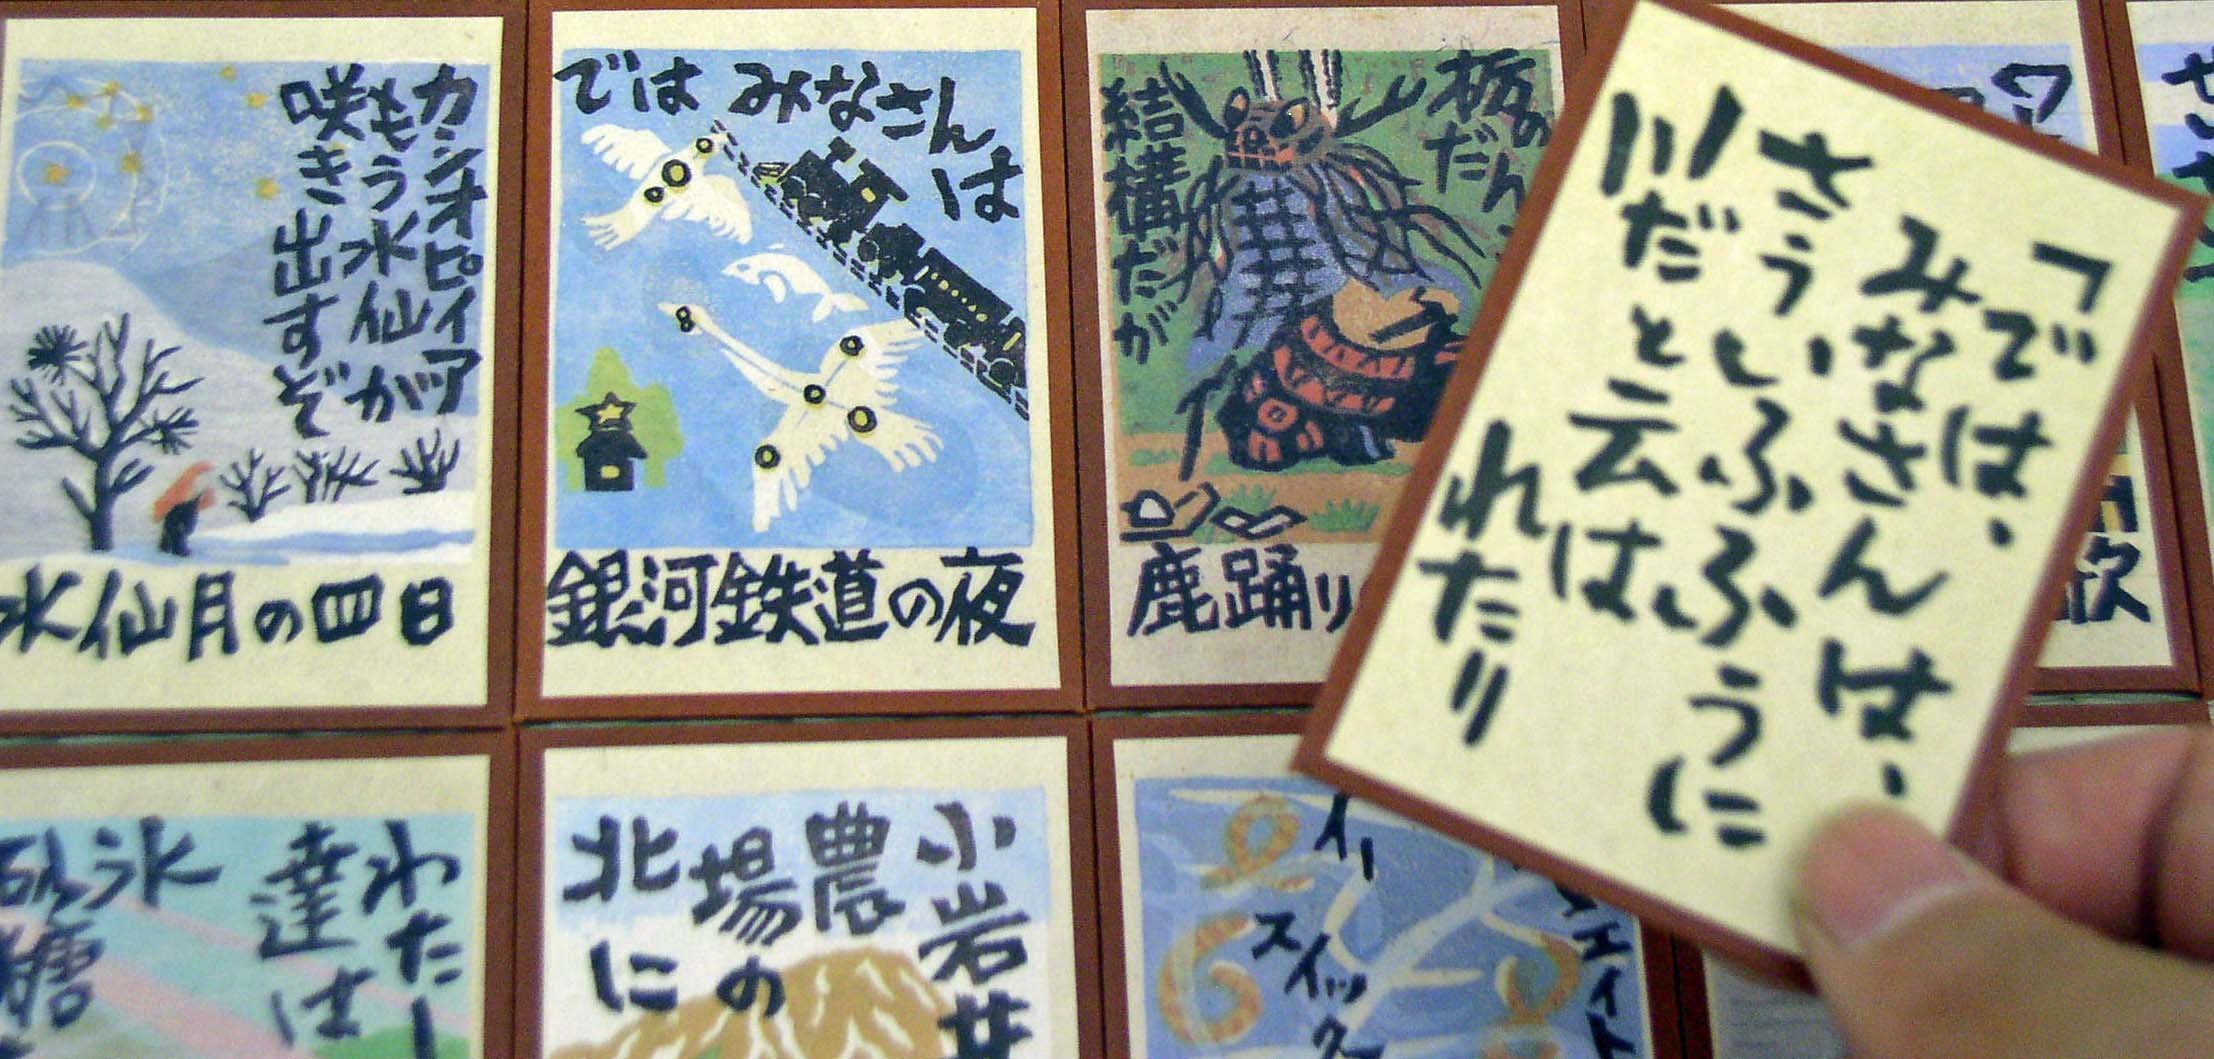 カシオピイア
もう水仙が
咲き出すぞ
水仙月の四日
では みなさんは
銀河鉄道の夜
栃のだん
結構だが
鹿踊り
「では、
みなさんは、
さういふふうに
川だと云は
れたり
わたし
達は
氷
砂糖
小岩井
農
場の
北に
スイック